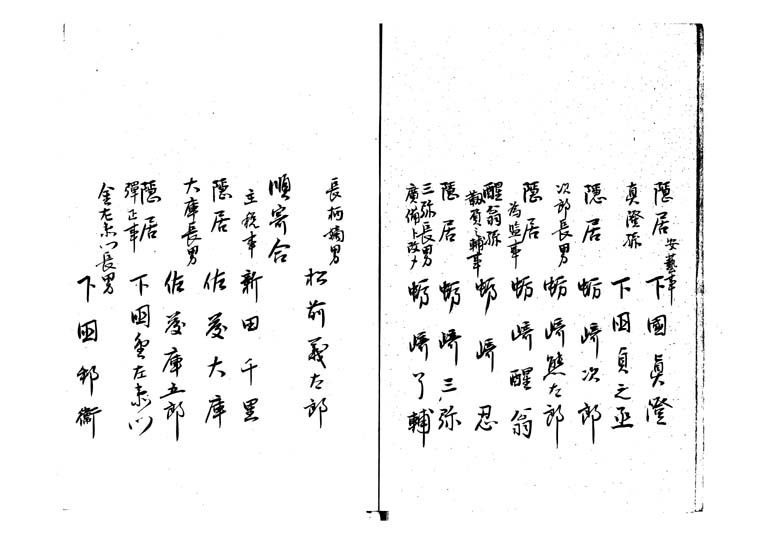 隠居 安藝事 下國眞澄
眞澄孫 下国貞之丞
隠居 蛎崎次郎
次郎長男 蛎崎熊太郎
隠居 為監事 蛎崎醒翁
醒翁孫 蛎崎忍
隠居 蛎崎三弥
三弥長男 廣備ト改ム 蛎崎了輔
長柄嫡男 松前義太郎
順寄合
主税事 新田千里
隠居 佐藤大庫
大庫長男 佐藤庫五郎
隠居 弾正事 下国金左衛門
金左衛門長男 下国邦衛